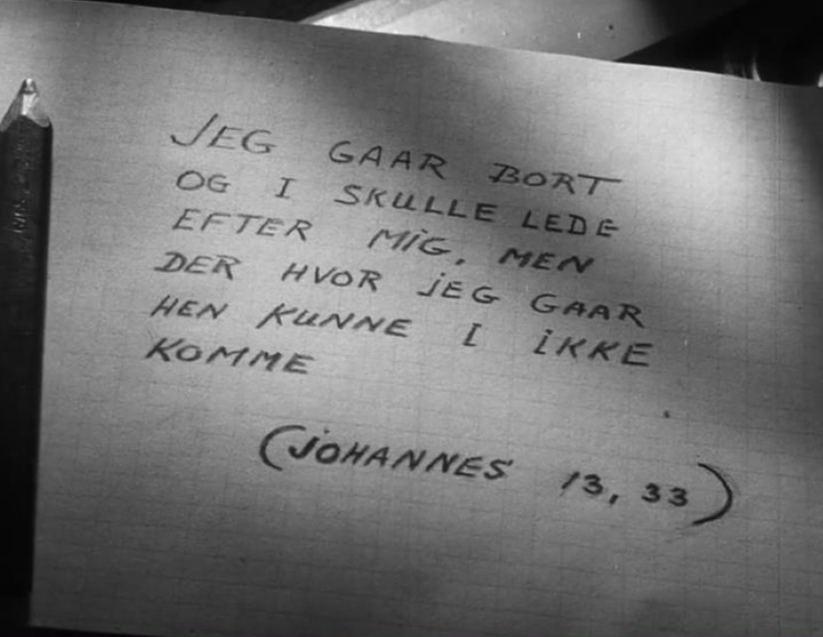 JEG GAAR BORT
OG I SKULLE LEDE
EFTER MiG, MEN
DER HVOR jEG GAAR
HEN KUNNE I iKKE
KOMME
(jOHANNES 13, 33)